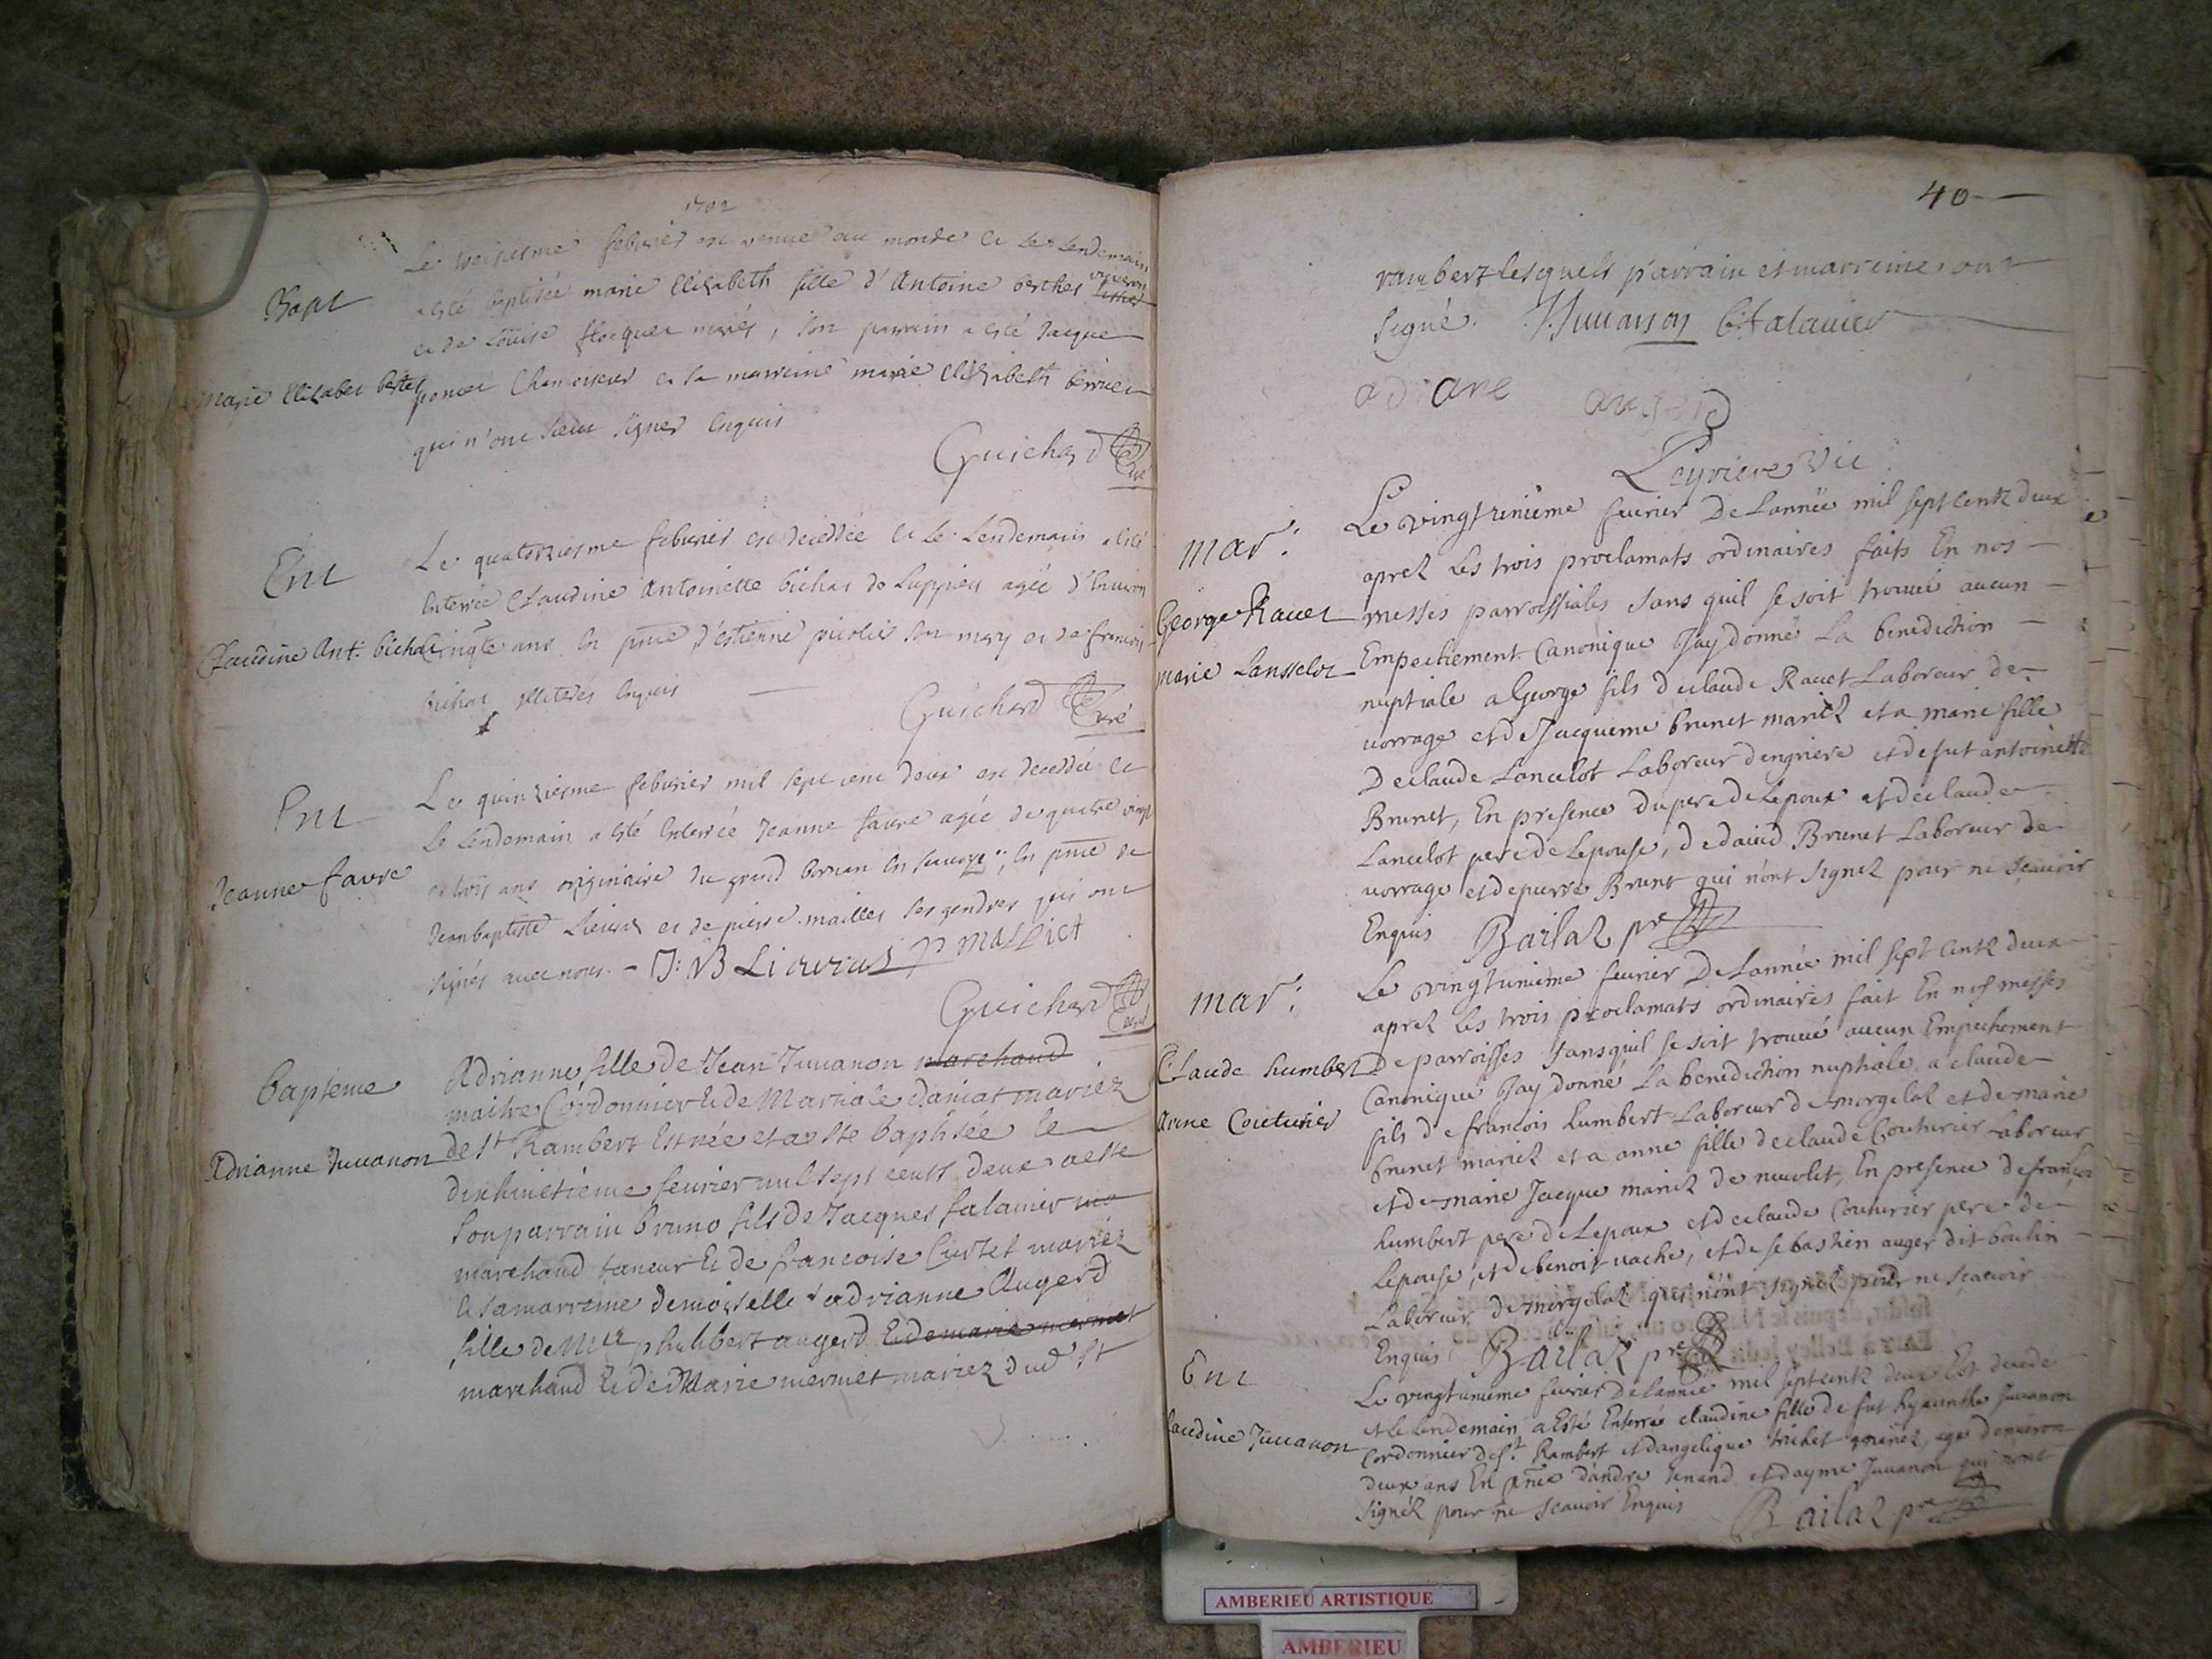 1702
Bapt
Marie Elizabet bertet
Le treiziesme febvrier est venue au monde et le lendemain
a esté baptisée marie Elizabeth fille d'Antoine berthet vigneron
et de Louise floquet mariés, son parrain a esté Jacque
poncet Chamoiseur et sa marreine marie Elizabeth bernet
qui n'ont sceu signer Enquis
Guichard Curé
Ent
Claudine Ant. bichat
Le quatorziesme febvrier est décédée et le lendemain a esté
Enterrée Claudine Antoinette bichat de Luppieu agée d'Environ
Cinqte ans En pnce d'estienne nicolier son mary et de francois
bichat illiterés Enquis
Guichard Curé
Ent
Jeanne favre
Le quinziesme febvrier mil sept cent deux est décédée et
le lendemain a esté Enterrée Jeanne favre agée de quatre vingt
et trois ans originaire du grand bornan En savoye, En pnce de
Jean baptiste Lieuras et de pierre mailles ses gendres qui ont
signés avec nous. - J: B Lieuras P mallict
Guichard Curé
bapteme
Adrianne Juuanon
Adrianne fille de Jean Juuanon marchand
maitre Cordonnier & de Martiale daniat mariez
de St Rambert Est née et a este baptisée le
dixhuictieme feurier mil sept cents deux a este
son parrain bruno fils de Jacques falauier
marchand taneur & de francoise Curtet mariéz
& sa marreine demoiselle adrianne Augerd
fille de Mre philibert augerd & de marie mermet
marchand & de Marie mermet mariez dud St
40
rambert lesquels parrain et marreine ont
signé. J. Juuanon C. falauier
adriane augerd
Leyriere Vic
mar:
George Rauet
marie Lansselot
Le vingtunieme feurier De Lannée mil sept centz deux
aprez Les trois proclamats ordinaires faits En nos
messes parroissiales sans quil se soit trouué aucun
Empechement Canonique Jay donné La benediction
nuptiale a George fils de claude Rauet Laboreur de
uorrage et de Jacqueme brunet mariez et a marie fille
De claude Lancelot Laboreur dengriere et de fut antoinette
Brunet, En presence du pere de Lepoux et de claude
Lancelot pere de Lepouse, de dauid Brunet Laboreur de
uorrage et de pierre Brunet qui n'ont signez pour ne sçauoir
Enquis Bailaz pre
mar:
Claude humbert
Anne Couturier
Le vingtunieme feurier De Lannée mil sept centz deux
aprez les trois proclamats ordinaires fait En nos messes
De parroisses sans quil se soit trouué aucun Empechement
Canonique Jay donné La benediction nuptiale a claude
fils de francois humbert Laboreur de morgelaz et de marie
brunet mariez et a anne fille de claude Couturier Laboreur
et de marie Jacque mariez de neuolet, En presence de françois
humbert pere de Lepoux et de claude Couturier pere de
Lepouse, et de benoit uache, et de sebastien auger dit boulin
Laboreur de morgelaz qui n'ont signez pour ne sçauoir
Enquis Bailaz pre
Ent
Claudine Juuanon
Le vingtunieme feurier De Lannée mil sept centz deux Est decede
et le Lendemain a Esté Enterré claudine fille de fut hyacinthe Juuanon
Cordonnier de St. Rambert et dangelique trichet mariez, age denuiron
deux ans En pnce dandre tenand et dayme Juuanon qui n'ont
signéz pour ne scauoir Enquis Bailaz pre
AMBERIEU ARTISTIQUE
AMBERIEU